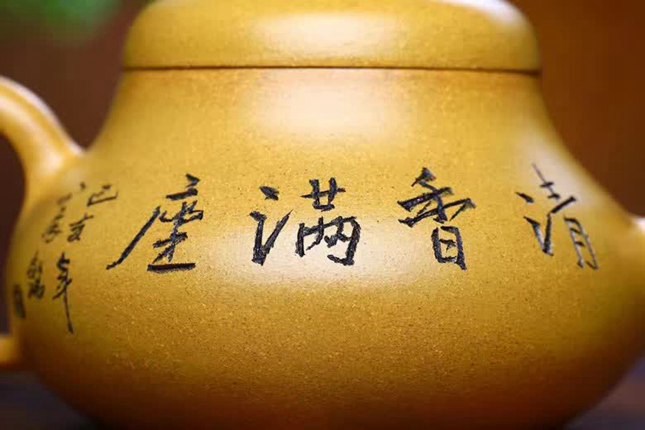 清香满座
己亥年